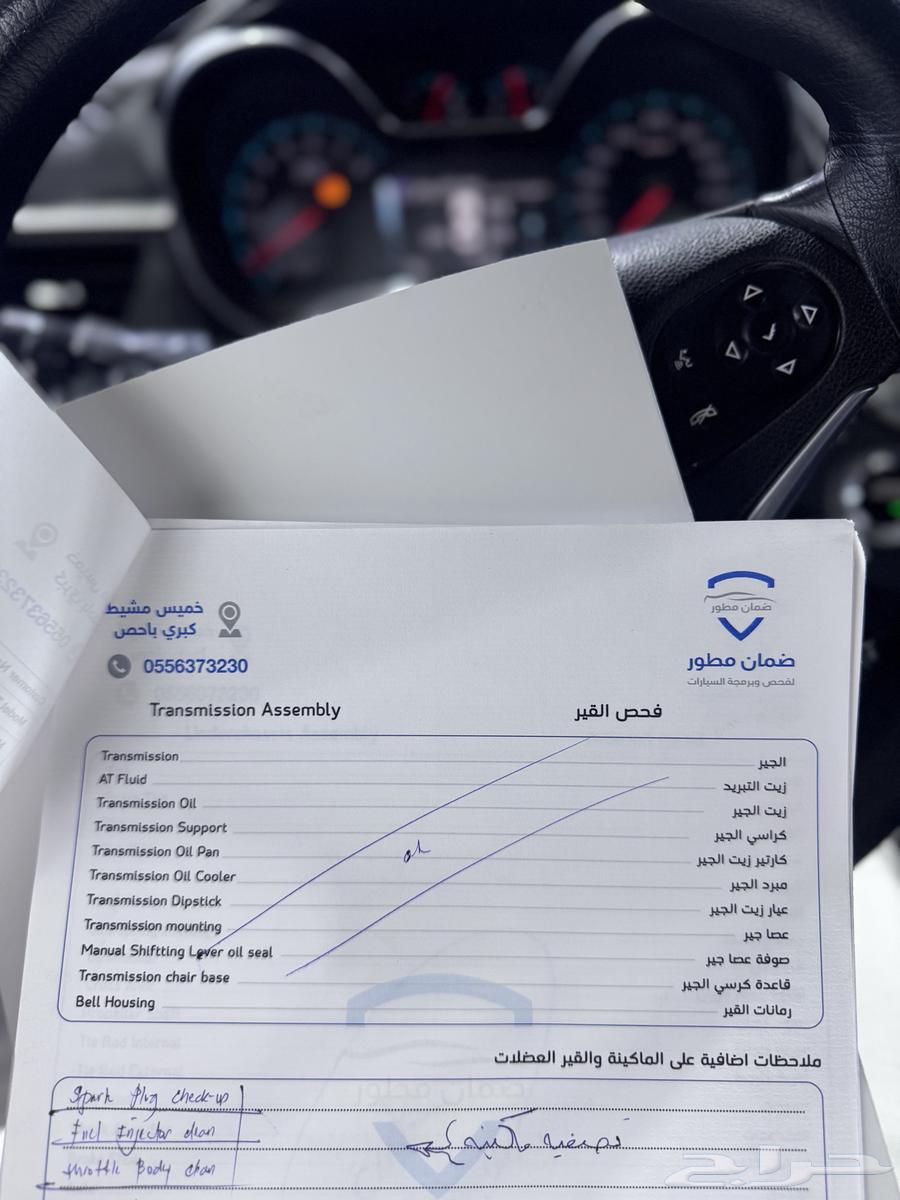 خميس مشيط
كبري باحص
0556373230
ضمان مطور
ضمان مطور
لفحص وبرمجة السيارات
Transmission Assembly فحص القير
Transmission الجير
AT Fluid زيت التبريد
Transmission Oil زيت الجير
Transmission Support كراسي الجير
Transmission Oil Pan كارتير زيت الجير
Transmission Oil Cooler مبرد الجير
Transmission Dipstick عيار زيت الجير
Transmission mounting عصا جير
Manual Shiftting Lever oil seal صوفة عصا جير
Transmission chair base قاعدة كرسي الجير
Bell Housing رمانات القير
ok
ملاحظات اضافية على الماكينة والقير العضلات
Spark Plug check-up
Fuel Injector clean
throttle Body clean
حراج